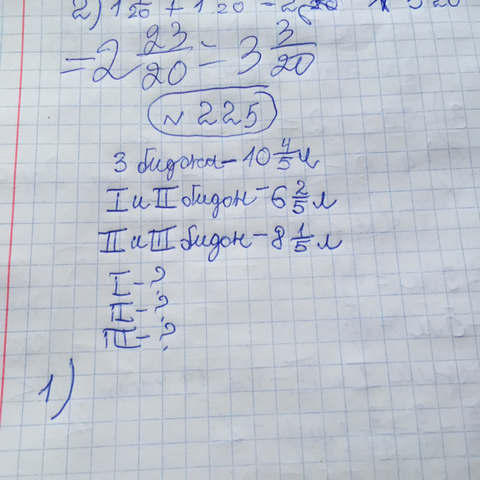 = 2 23/20 = 3 3/20
№ 225
3 бидона - 10 4/5 л
I и II бидон - 6 2/5 л
II и III бидон - 8 1/5 л
I - ?
II - ?
III - ?
1)